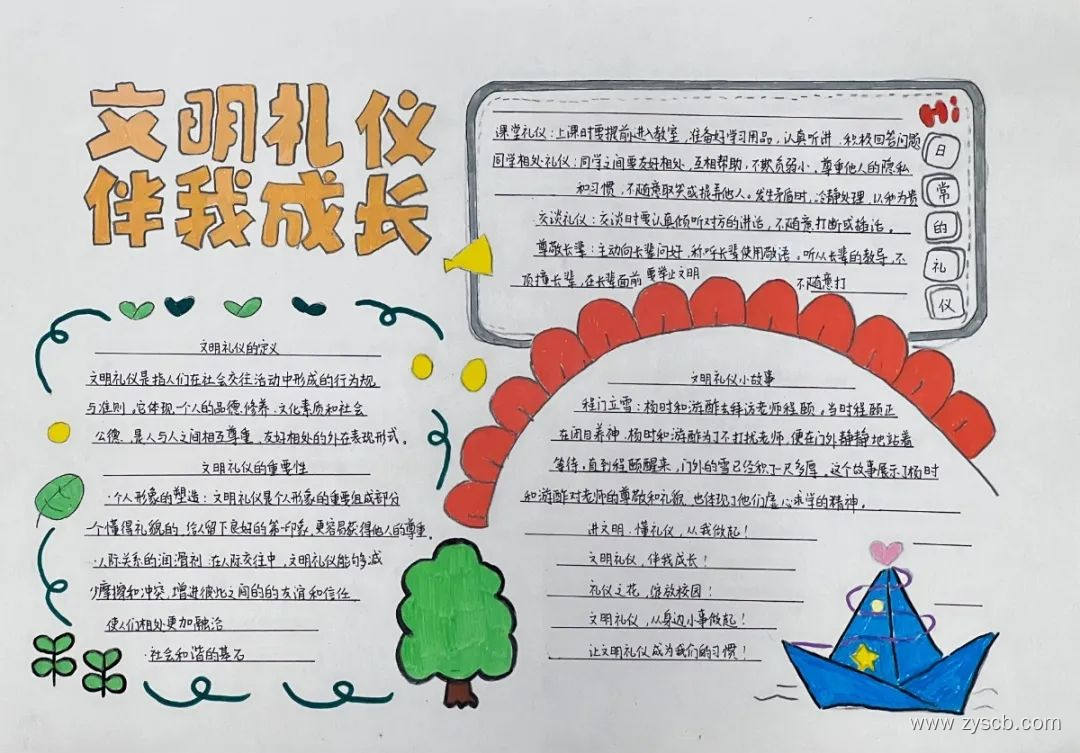 文明礼仪
伴我成长
Hi
日常的礼仪
课堂礼仪：上课时要提前进入教室，准备好学习用品，认真听讲，积极回答问题
同学相处礼仪：同学之间要友好相处，互相帮助，不欺负弱小，尊重他人的隐私
和习惯，不随意取笑或捉弄他人。发生矛盾时，冷静处理，以和为贵
交谈礼仪：交谈时要认真倾听对方的讲话，不随意打断或插话。
尊敬长辈：主动向长辈问好，称呼长辈使用敬语。听从长辈的教导，不
顶撞长辈，在长辈面前要举止文明 不随意打
文明礼仪的定义
文明礼仪是指人们在社会交往活动中形成的行为规
与准则，它体现一个人的品德、修养、文化素质和社会
公德，是人与人之间相互尊重，友好相处的外在表现形式。
文明礼仪的重要性
·个人形象的塑造：文明礼仪是个形象的重要组成部分
个懂得礼貌的，给人留下良好的第一印象，更容易获得他人的尊重
·人际关系的润滑剂：在人际交往中，文明礼仪能够减
少摩擦和冲突，增进彼此之间的的友谊和信任
使人们相处更加融洽
·社会和谐的基石
文明礼仪小故事
程门立雪：杨时和游酢去拜访老师程颐，当时程颐正
在闭目养神，杨时和游酢为了不打扰老师，便在门外静静地站着
等待，直到程颐醒来，门外的雪已经积了一尺多厚。这个故事展示了杨时
和游酢对老师的尊敬和礼貌，也体现了他们虚心求学的精神。
讲文明，懂礼仪，从我做起！
文明礼仪，伴我成长！
礼仪之花，绽放校园！
文明礼仪，从身边小事做起！
让文明礼仪成为我们的习惯！
www.zyscb.com